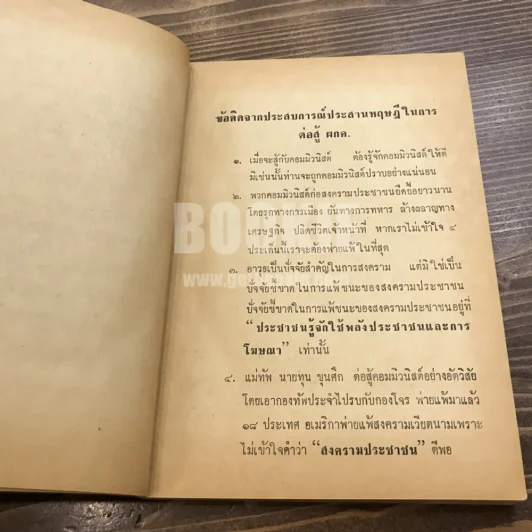 ข้อคิดจากประสบการณ์ประสานทฤษฎีในการ
ต่อสู้ ผกค.
๑. เมื่อจะสู้กับคอมมิวนิสต์ ต้องรู้จักคอมมิวนิสต์ให้ดี
มิเช่นนั้นท่านจะถูกคอมมิวนิสต์ปราบอย่างแน่นอน
๒. พวกคอมมิวนิสต์ก่อสงครามประชาชนยืดเยื้อยาวนาน
โดยรุกทางการเมือง ยันทางการทหาร ล้างผลาญทาง
เศรษฐกิจ ปลิดชีวิตเจ้าหน้าที่ หากเราไม่เข้าใจ ๔
ประเด็นนี้เราจะต้องพ่ายแพ้ในที่สุด
๓. อาวุธเป็นปัจจัยสำคัญในการสงคราม แต่มิใช่เป็น
ปัจจัยชี้ขาดในการแพ้ชนะของสงครามประชาชน
ปัจจัยชี้ขาดในการแพ้ชนะของสงครามประชาชนอยู่ที่
“ประชาชนรู้จักใช้พลังประชาชนและการ
โฆษณา” เท่านั้น
๔. แม่ทัพ นายทุน ขุนศึก ต่อสู้คอมมิวนิสต์อย่างอัตวิสัย
โดยเอากองทัพประจำไปรบกับกองโจร พ่ายแพ้มาแล้ว
๑๘ ประเทศ อเมริกาพ่ายแพ้สงครามเวียตนามเพราะ
ไม่เข้าใจคำว่า “สงครามประชาชน” ดีพอ